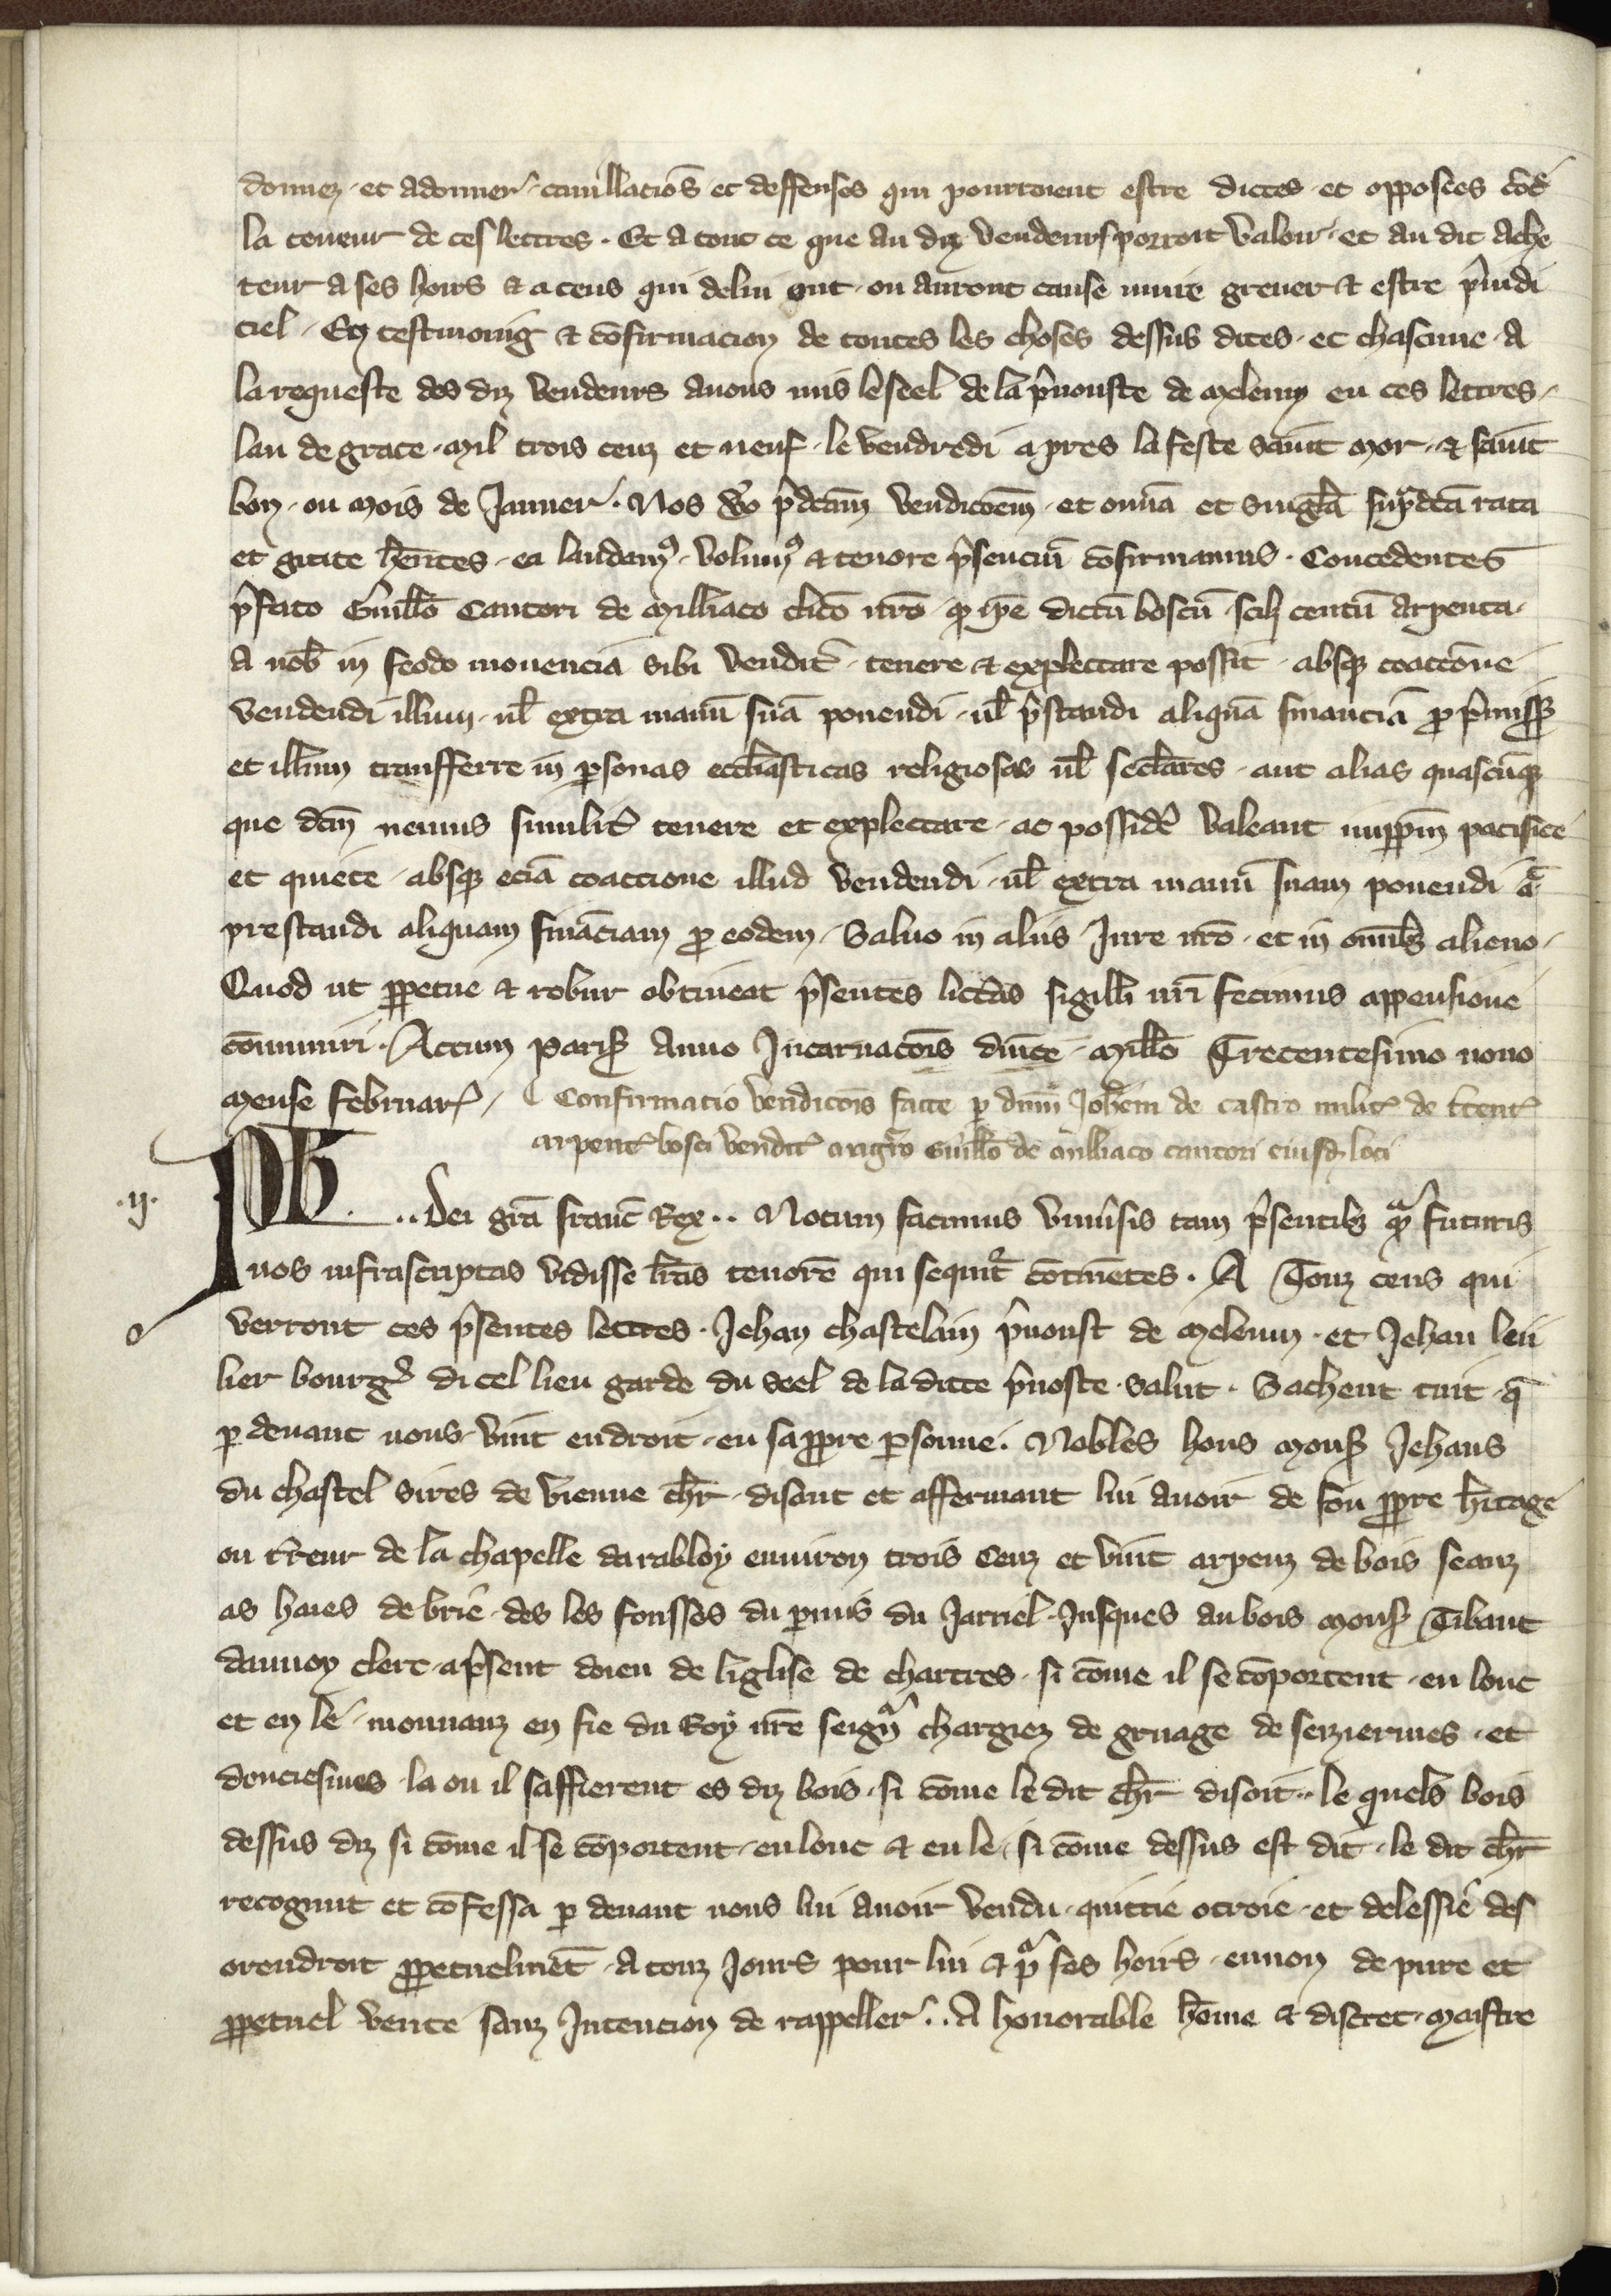 donnez · et adonner · cauillacions et deffenses qui pourroient estre dictes · et opposees cōt̄
la teneur de ces lettres · Et a tout ce que au diz vendeurs porroit valoir · et au dit ache
teur a ses hoirs & a ceus qui de lui ont · ou auront cause nuire greuer & estre p̄iudi
ciel · En testmoing & cōfirmacion de toutes les choses dessus dites · et chascune · A
la requeste des diz vendeurs auons mis le seel de la p̄uouste de Meleun en ces lettres ·
lan de grace · Mil trois cenz et neuf · le vendredi apres la feste saint Mor · & saint
bon · ou mois de Januier · Nos v̊o p̄dcām vendicōem · et om̄ia et singl̄a sup̄dcā rata
et grata hēntes · ea laudamꝰ · volumꝰ & tenore p̄senciū cōfirmamus · Concedentes
p̄fato Guill̄o Cantori de Milliaco cl̄ico nr̄o · ꝙ ip̄e dictū boscū · scilꝫ centū arpenta ·
a nob̄ in feodo mouencia sibi vendit̄ · tenere & explectare possit · absqꝫ coaccōne
vendendi illum · ul̄ extra manū suā ponendi · ul̄ p̄standi aliquā financiā ꝓ p̄miss̄
et illum transferre in ꝑsonas eccl̄iasticas religiosas ul̄ secl̄ares · aut alias quascūqꝫ
que dcm̄ nemus similit̄ tenere et explectare · ac possid̄e valeant imꝑpm̄ pacifice
et quiete · absqꝫ eciā coaccione illud vendendi · ul̄ extra manū suam ponendi a̅
prestandi aliquam fināciam ꝓ eodem · Saluo in aliis · Jure nr̄o · et in om̄ibꝫ alieno ·
Quod ut ꝑpetue & robur obtineat p̄sentes litt̄as sigilli nr̄i fecimus appensione
cōmuniri · Actum Paris̄ Anno Incarnacōis dn̄ice · Mill̄o Trecentesimo nono
mense februar̄ /
Confirmatio vendicōis facte ꝑ dn̄m Joh̄em de castro milit̄ de t̄cent̄
arpent̄ bosci vendit̄ magr̄o Guill̄o de Milliaco cantori eiusdꝫ loci
·ij·
Ph · ·· Dei gr̄a franc̄ Rex ·· Notum facimus vniūsis tam p̄sentibꝫ qͣ̄ futuris
nos infrascriptas vidisse lr̄as tenorē qui sequit̄ cōtinētes · A Touz ceus qui
verront ces p̄sentes lettres · Jehan chastelain p̄uoust de Meleun · et Jehan leu
lier bourḡ dicel lieu garde du seel de la dicte p̄uoste · salut · Sachent tuit · q̄
ꝑ deuant nous · vint en droit · en sa ꝓpre ꝑsonne · Nobles hons mons̄ Jehans
du chastel sires de vienne ch̄r · disant et affermant lui auoir de son ꝓpre h̄itage
ou t̄reur de la chapelle darabloy enuiron trois cenz et vint arpenz de bois seanz
as haies de brie · des les fousses du ꝑmis du Jarriel · Jusques au bois mons̄ Tibaut
daunoy clerc · ap̄sent doien de liglise de chartres · si cōme il se cōportent · en lonc
et en lé · mouuanz en fie du Roy nr̄e seign̄ chargiez de gruage de seziermes · et
douciesmes · la ou il saffierent es diz bois · si cōme le dit ch̄r disoit ·· le quels bois
dessus diz si cōme il se cōportent · en lonc & en le · si cōme dessus est dit · le dit ch̄r
recognut et cōfessa ꝑ deuant nous lui auoir vendu · quittie otroie · et delessie des
orendroit ꝑpetuelmēt · A touz Jours pour lui & pͬ ses hoirs · en non de pure et
ꝑpetuel vente sanz Intencion de rappeller ·· A honorable hōme & discret · Maistre